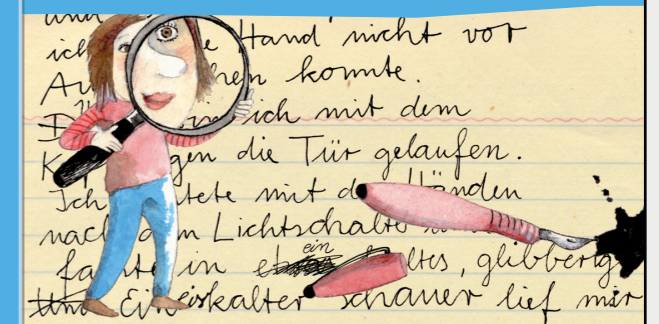 und
ich e Hand nicht vor
Au hen konnte.
D in ich mit dem
K gen die Tür gelaufen.
Ich tete mit d Händen
nach d m Lichtschalte
fa te in ein ltes, glibberig
Und Ein eiskalter Schauer lief mir